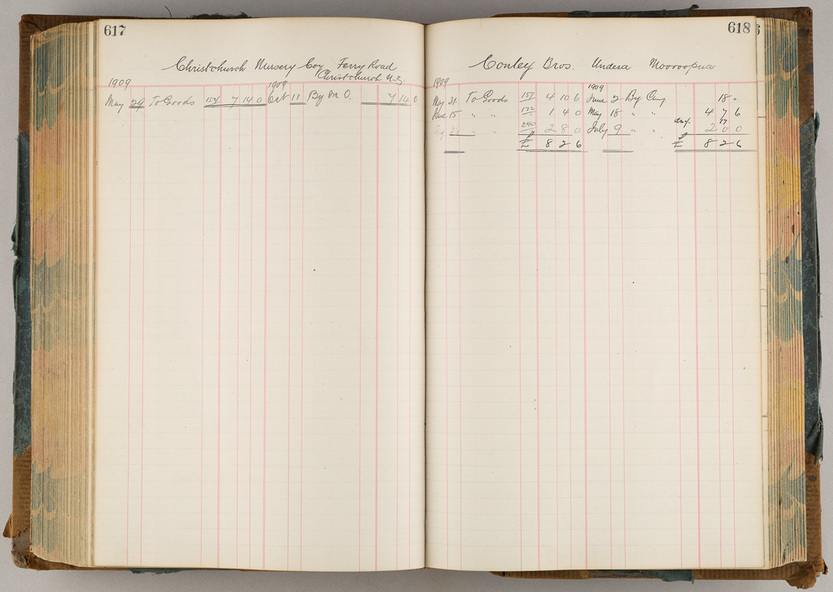 617
Christchurch Nursery Coy Ferry Road
Christchurch N.Z.
1909 1909
May 24 To Goods 154 7 14 0 Oct 11 By M. O. 7 14 0
618
Conley Bros. Undera Mooroopna
1909 1909
May 31 To Goods 157 4 10 6 June 2 By 18 -
June 15 " " 172 1 4 0 May 18 " " 4 7 6
" 2 8 0 July 9 " " 2 0 0
£ 8 2 6 £ 8 2 6